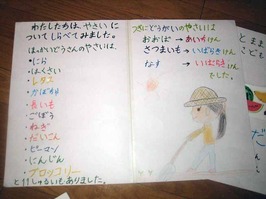 わたしたちは、やさいに
ついてしらべてみました。
ほっかいどうさんのやさいは、
・にら
・はくさい
・レタス
・かぼちゃ
・長いも
・ごぼう
・ねぎ
・だいこん
・ピーマン
・にんじん
・ブロッコリー
と11しゅるいもありました。
つぎにどうがいのやさいは
おおば→あいちけん
さつまいも→いばらきけん
なす→いばらきけん
でした。